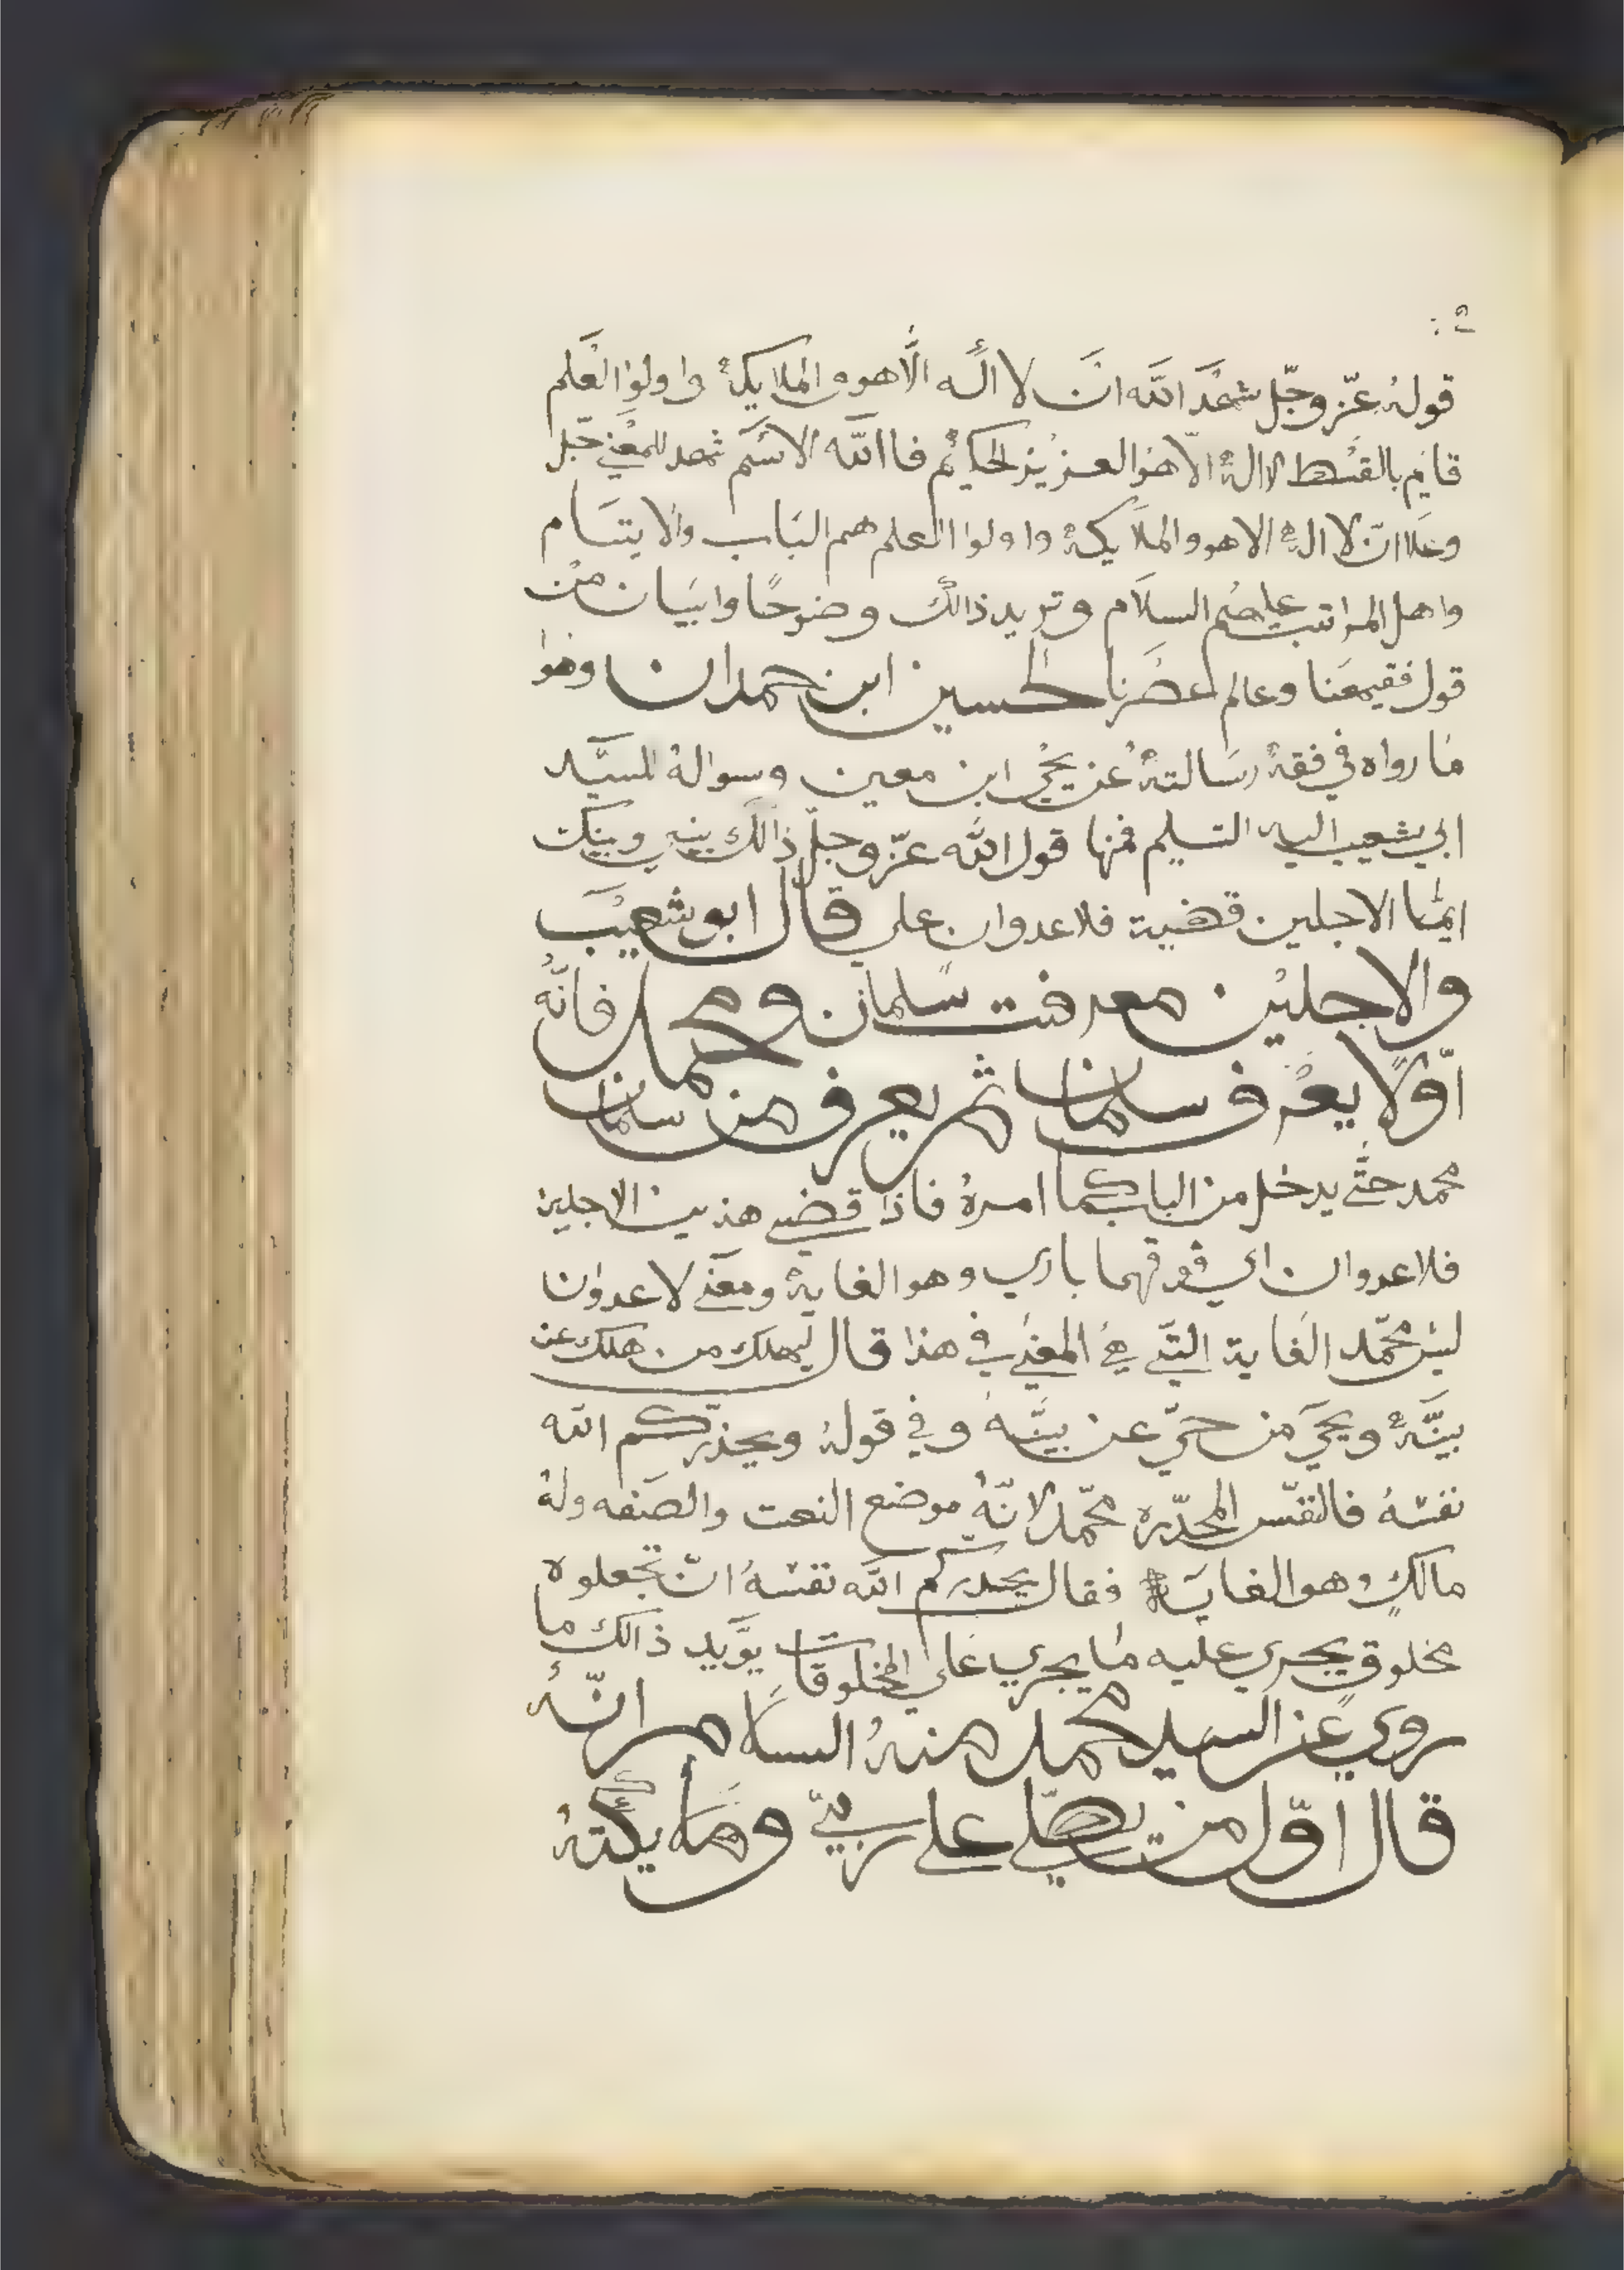 قوله عزّ وجّل شهد الله انّ لا اله الّا هو والملايكة واولوا العلم
قايم بالقسط لا اله الّا هوا العزيز الحكيم فاالله الاسم شهد للمعني جّل
وعلا انّ لا اله الا هو والملايكة واولوا العلم هم الباب والايتام
واهل المراتب عليهم السلام وتريد ذالك وضوحًا وابيان من
قول فقيهنا وعالم عصرنا الحسين ابن حمدان وهوا
ما رواه في فقه رسالته عن يحي ابن معين وسواله للسيّد
ابي شعيب اليه التسليم فمنها قول الله عزّ وجلّ ذالك بيني وبينك
ايّما الاجلين قضية فلا عدوان علي قال ابو شعيب
والاجلين معرفت سلمان ومحمد فانّه
اوّلًا يعرف سلمان ثم يعرف من سلمان
محمد حتّي يدخل من الباب كما امره فاذا قضي هذين الاجلين
فلا عدوان اي فوقهما باري وهو الغاية ومعني لا عدوان
ليس محمّد الغاية التّي هي المعني في هذا قال ليهلك من هلك عن
بيّنة ويحي من حيّ عن بيّنة وفي قوله ويحذركم الله
نفسه فالنفس المحذّره محمّد لانّه موضع النعت والصفه وله
مالك وهو الغاية فقال يحذركم الله نفسه انّ تجعلوه
مخلوق يجري عليه ما يجري علي المخلوقات يوّيد ذالك ما
روي عن السيد محمد منه السلام انّه
قال اوّل من يصلّي علي ربّي وملايكته